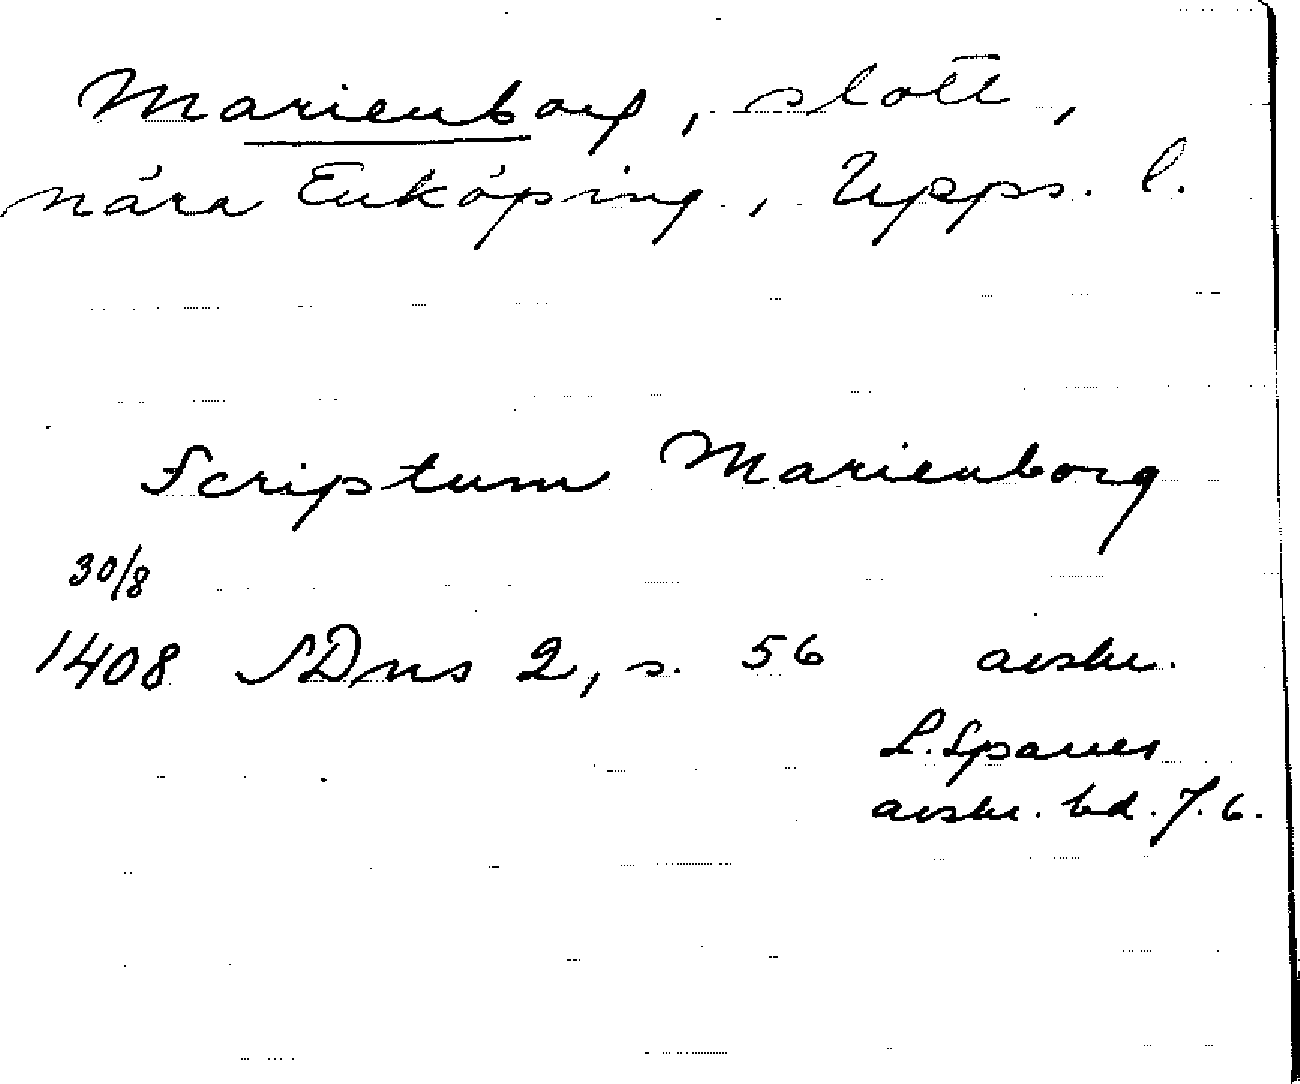 Marienborg, slott,
nära Enköping, Upps. l.
Scriptum Marienborg
30/8
1408 SDns 2, s. 56 avskr.
L. Sparres
avskr. bd. 7. 6.